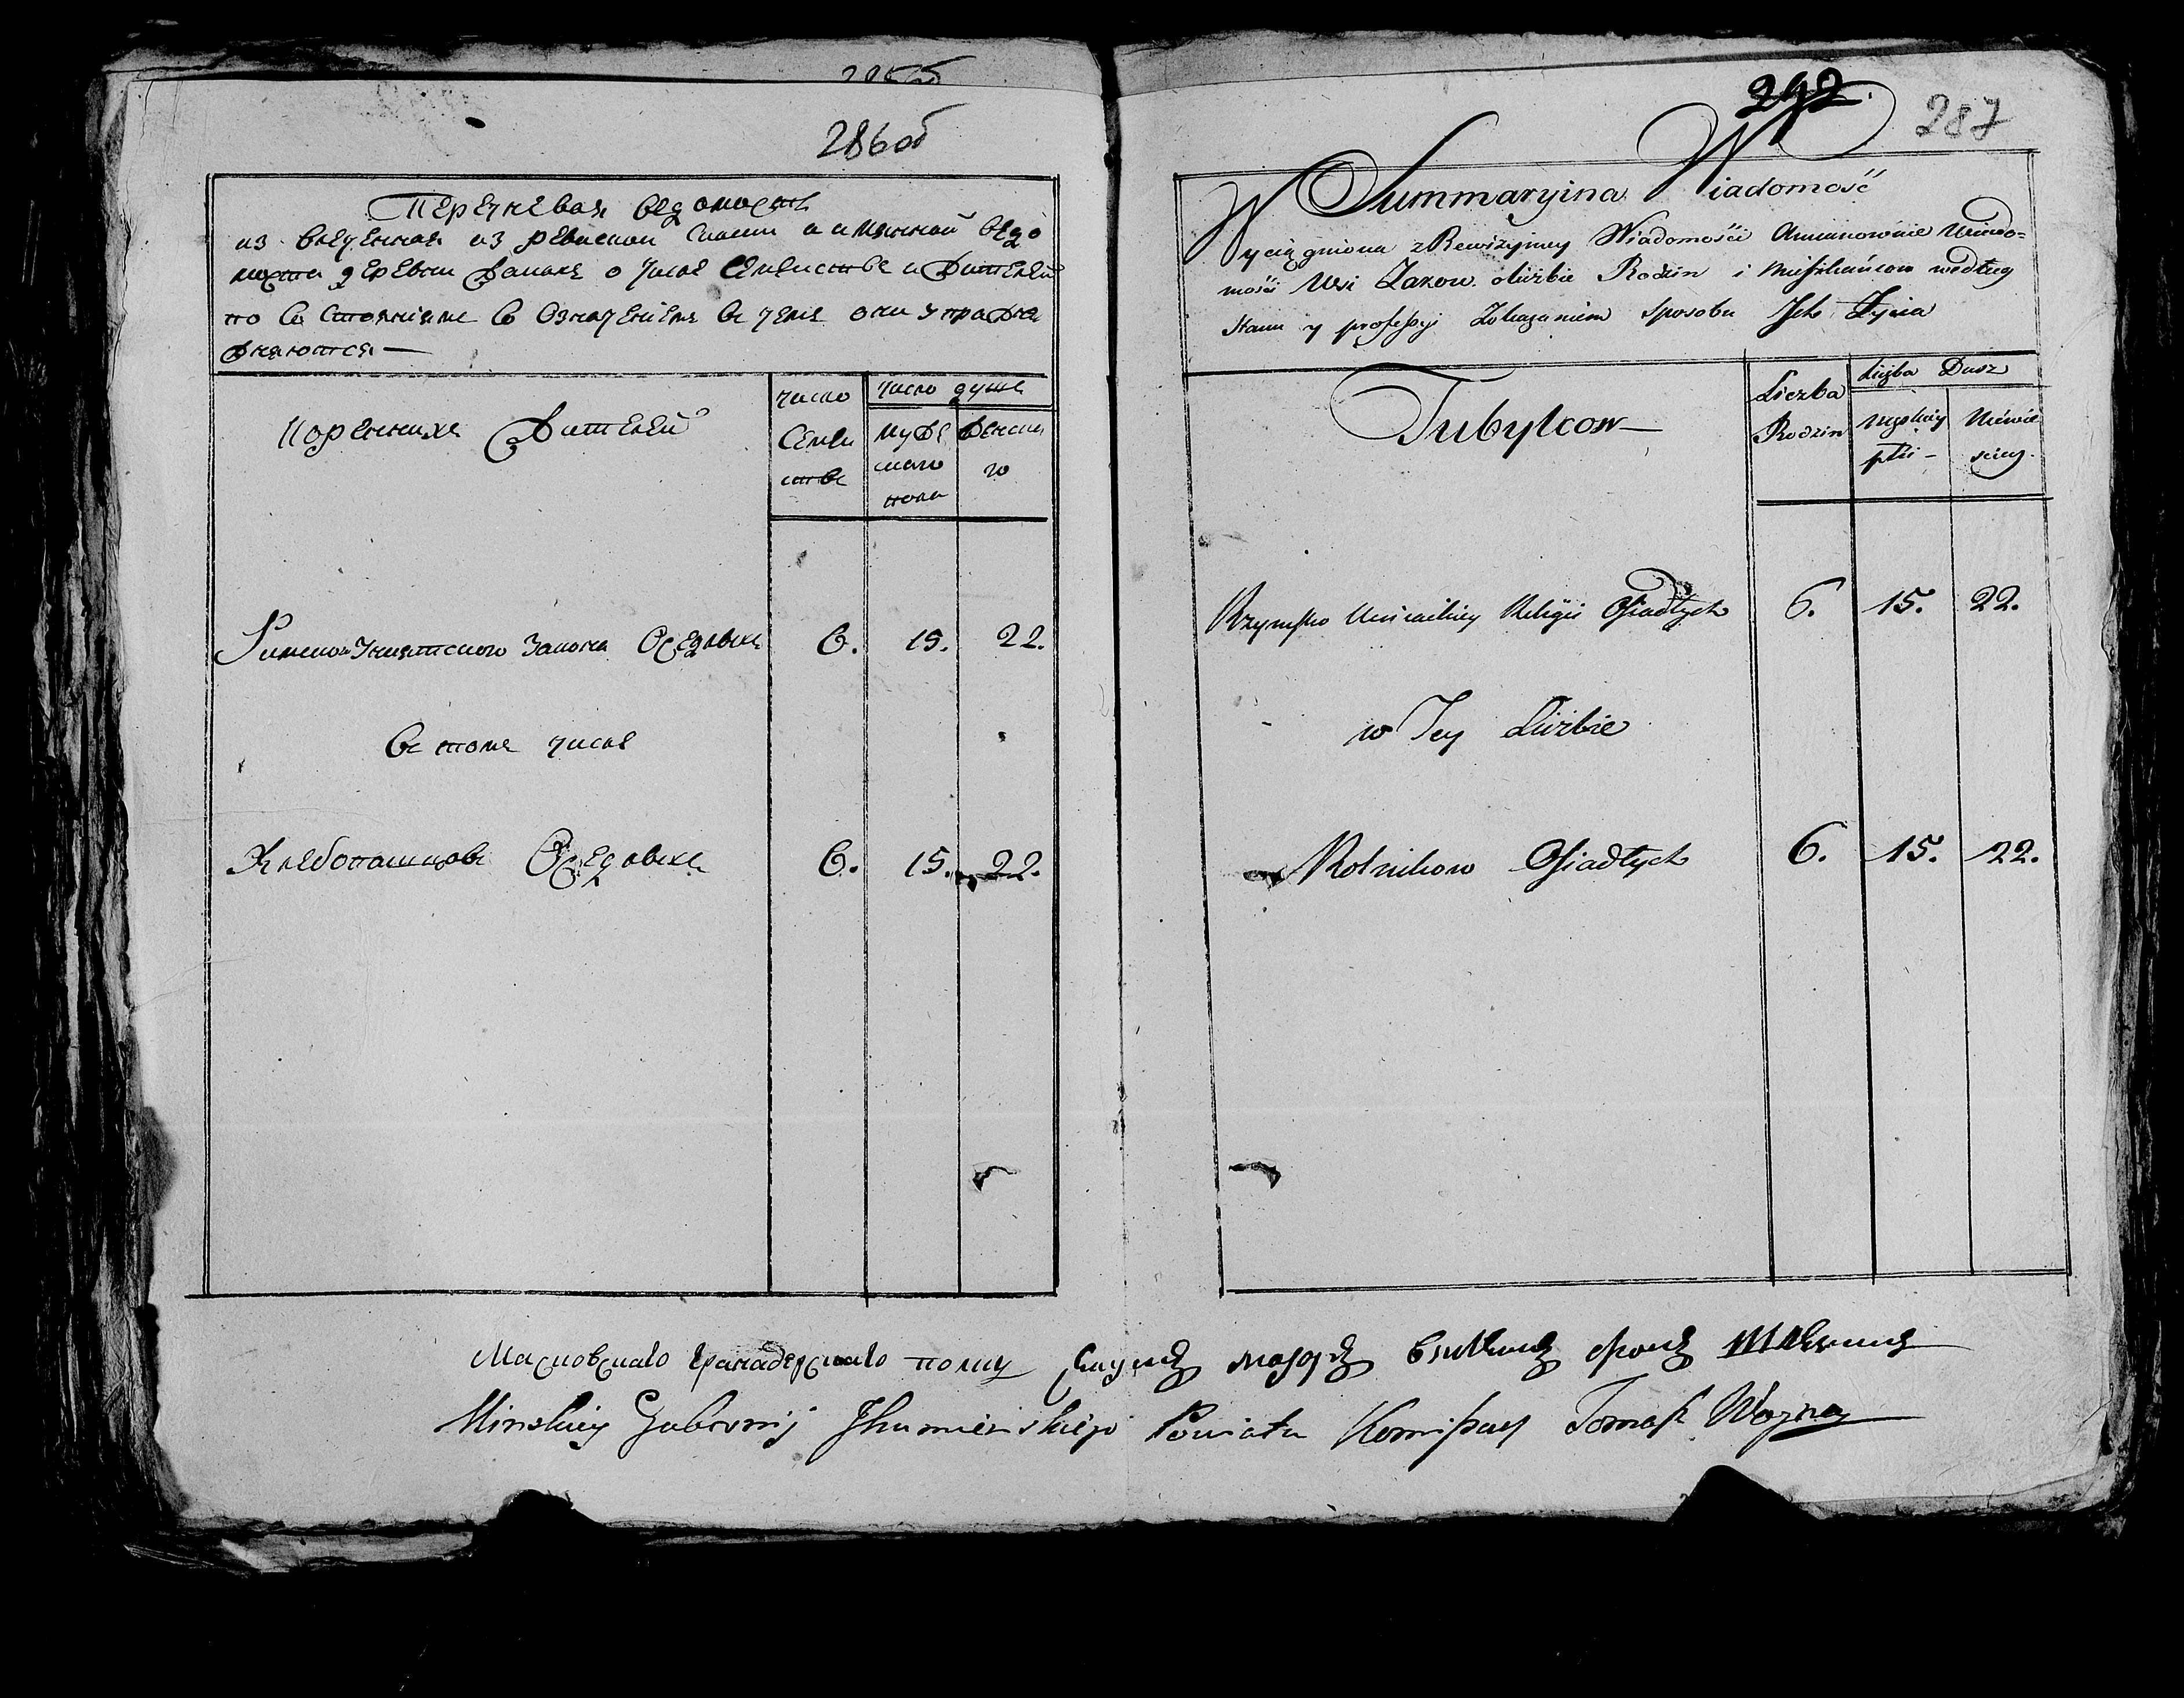 286об
Перечневая ведомость
из влеченная из ревиской скаски и имянной ведо
мости деревни Жаковъ о числе семействъ и жителей
по со стоянiямъ со означенiемъ въ чемъ они упраж
жняются —
Коренныхъ Жителей
число
Семей
ствъ
число душъ
мужес
скаго
пола
женска
го
Римско Униятского Закона Оседлыхъ 6. 15. 22.
въ томъ числе
Хлебопашцовъ Оседлыхъ 6. 15. 22.
292.
287
Summaryina Wiadomość
Wyciągniona z Rewizyiney Wiadomości Aimianowicie Wiado=
mości Wsi Zakow o liczbie Rodzin i Mieszkańcow według
stanu y professyi Zokazaniem sposobu Ich Życia
Tubylcow
Liczba
Rodzin
Liczba Dusz
męskiey
płci -
Niewie
sciey.
Rzymsko Uniackiey Religii Osiadłych 6. 15. 22.
w Tey Liczbie
Rolnikow Osiadłych 6. 15. 22.
Московскаго гранадерскаго полку секундъ маіоръ
Minskiey Gubernij Ihumienskiego Powiatu Komisarz Tomasz Woyna